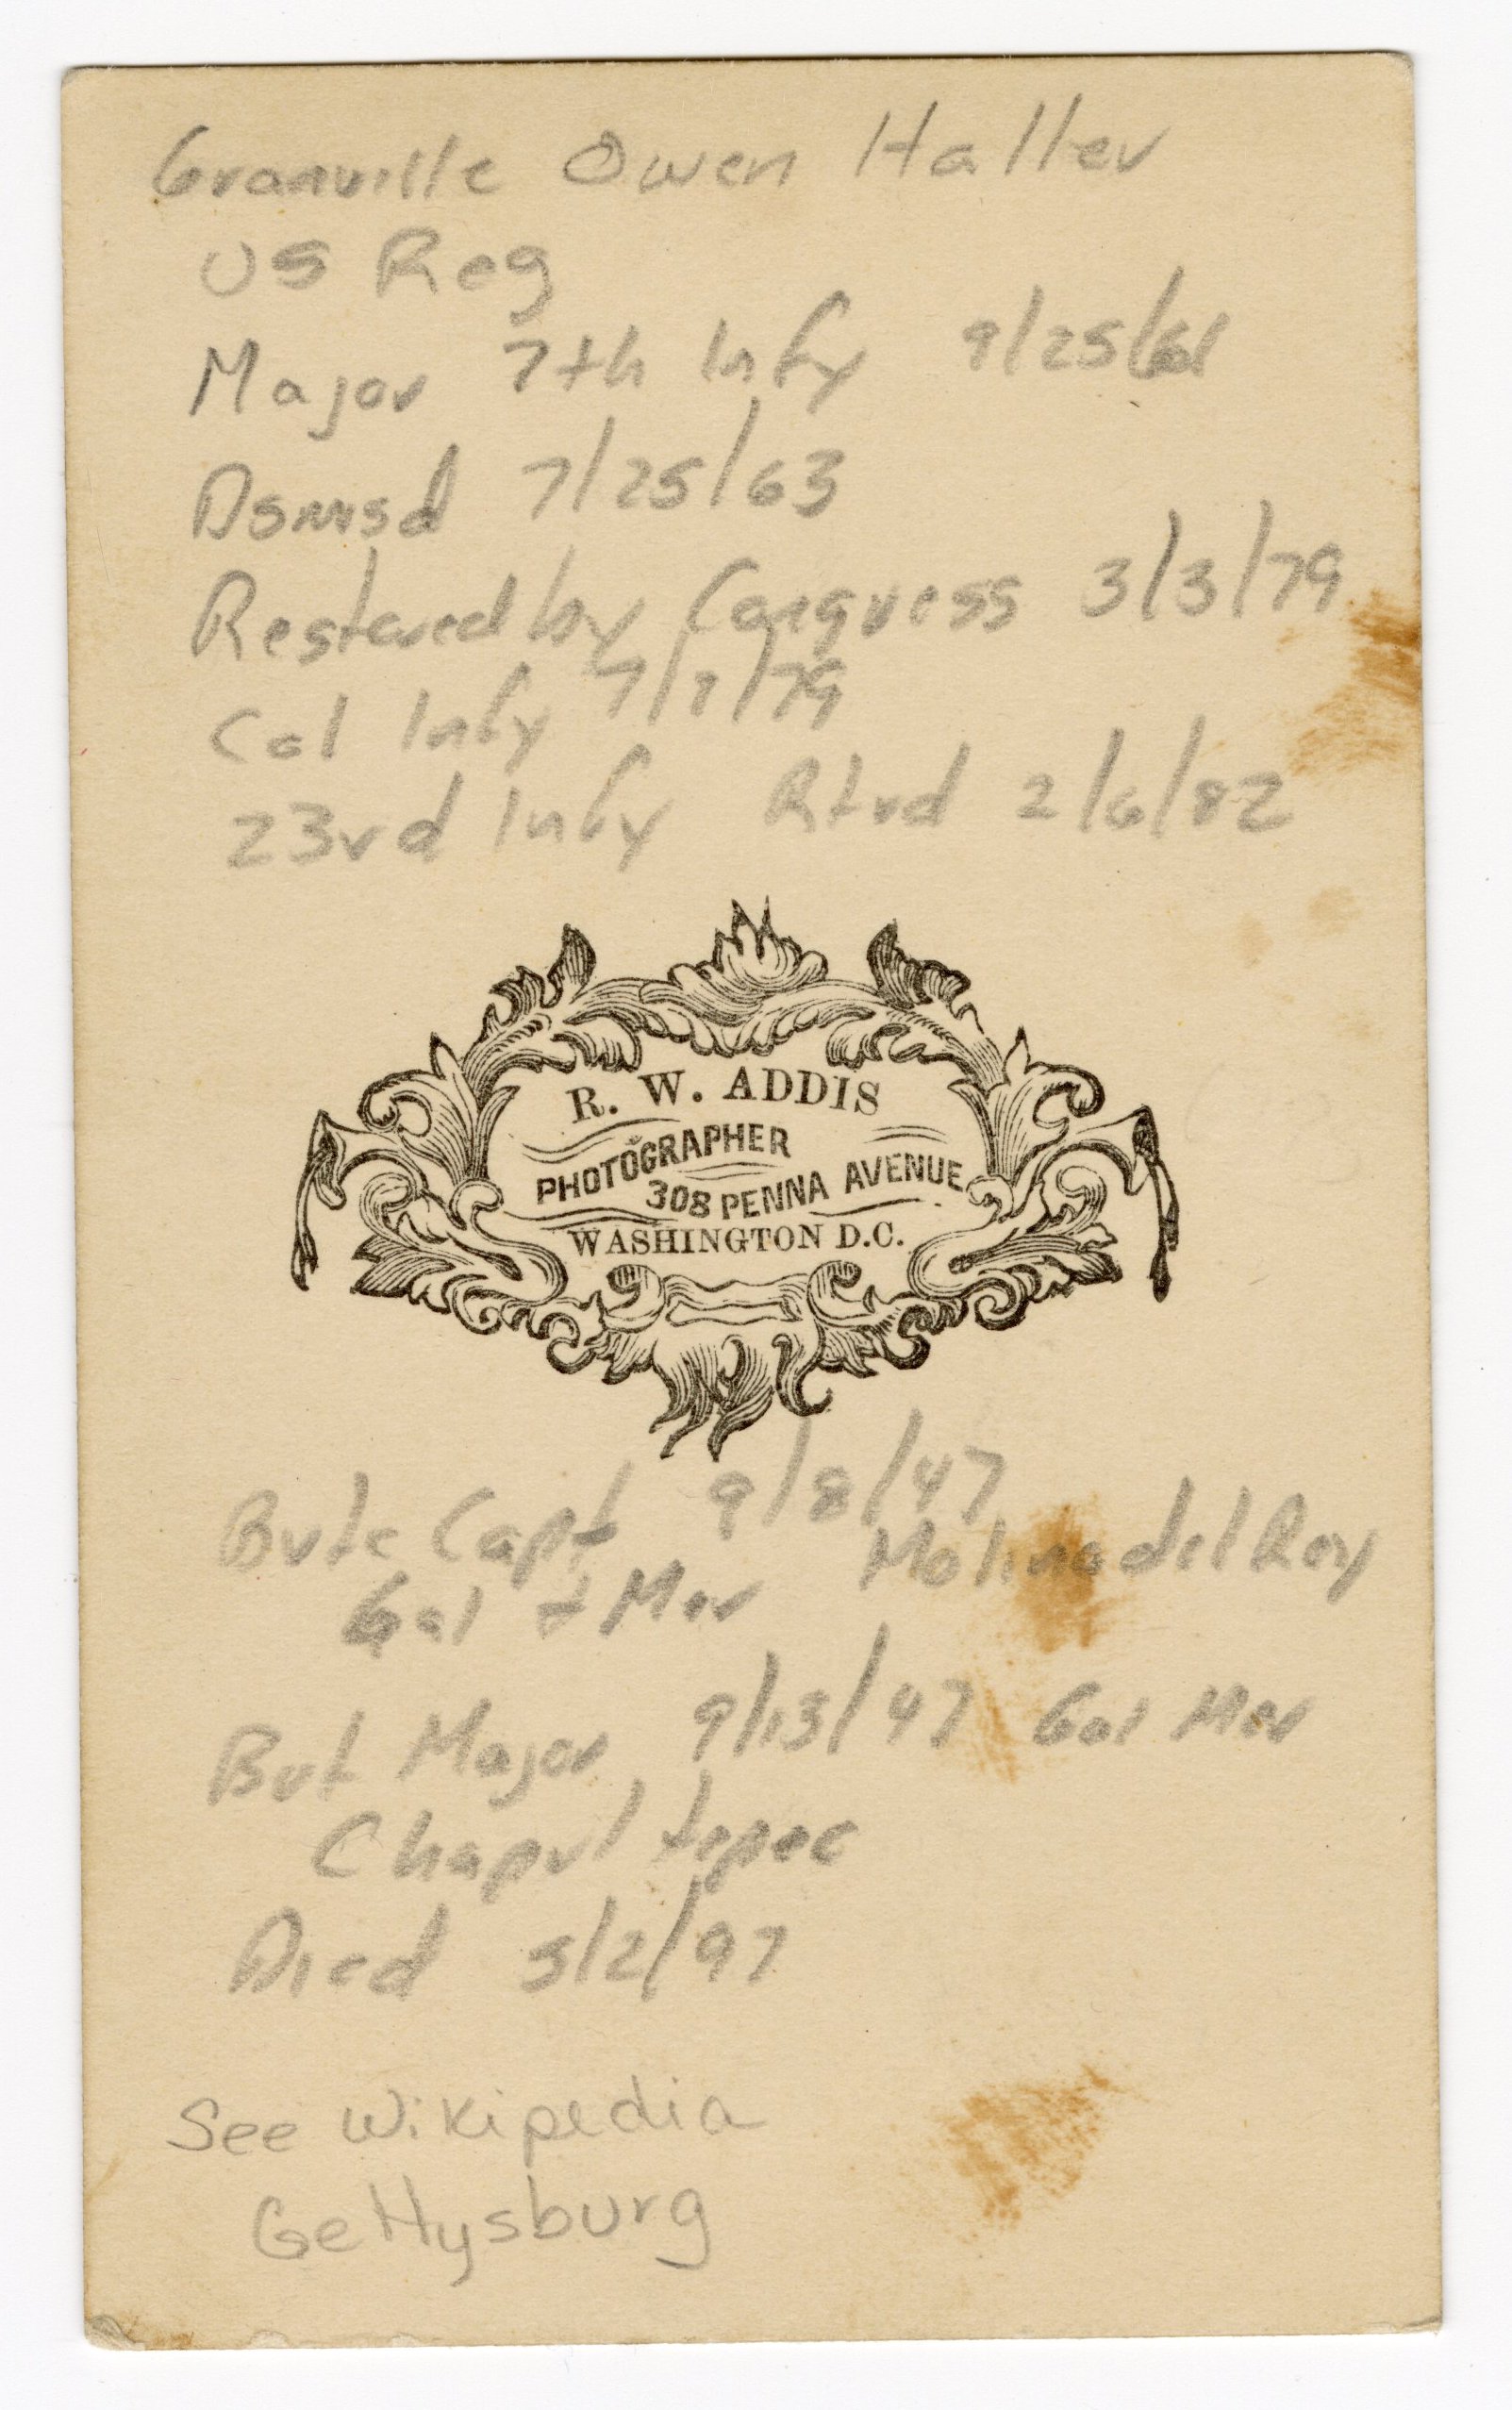 Granville Owen Haller
US Reg
Major 7th Infy 9/25/61
Dsmsd 7/25/63
Restored by Congress 3/3/79
Col Infy 7/1/79
23rd Infy Rtrd 2/6/82
R. W. ADDIS
PHOTOGRAPHER
308 PENNA AVENUE
WASHINGTON D.C.
Bvtc Capt 9/8/47
Gal + Mer Molino del Rey
Bvt Major 9/13/47 Gal Mer
Chapultepec
Died 5/2/97
See Wikipedia
Gettysburg